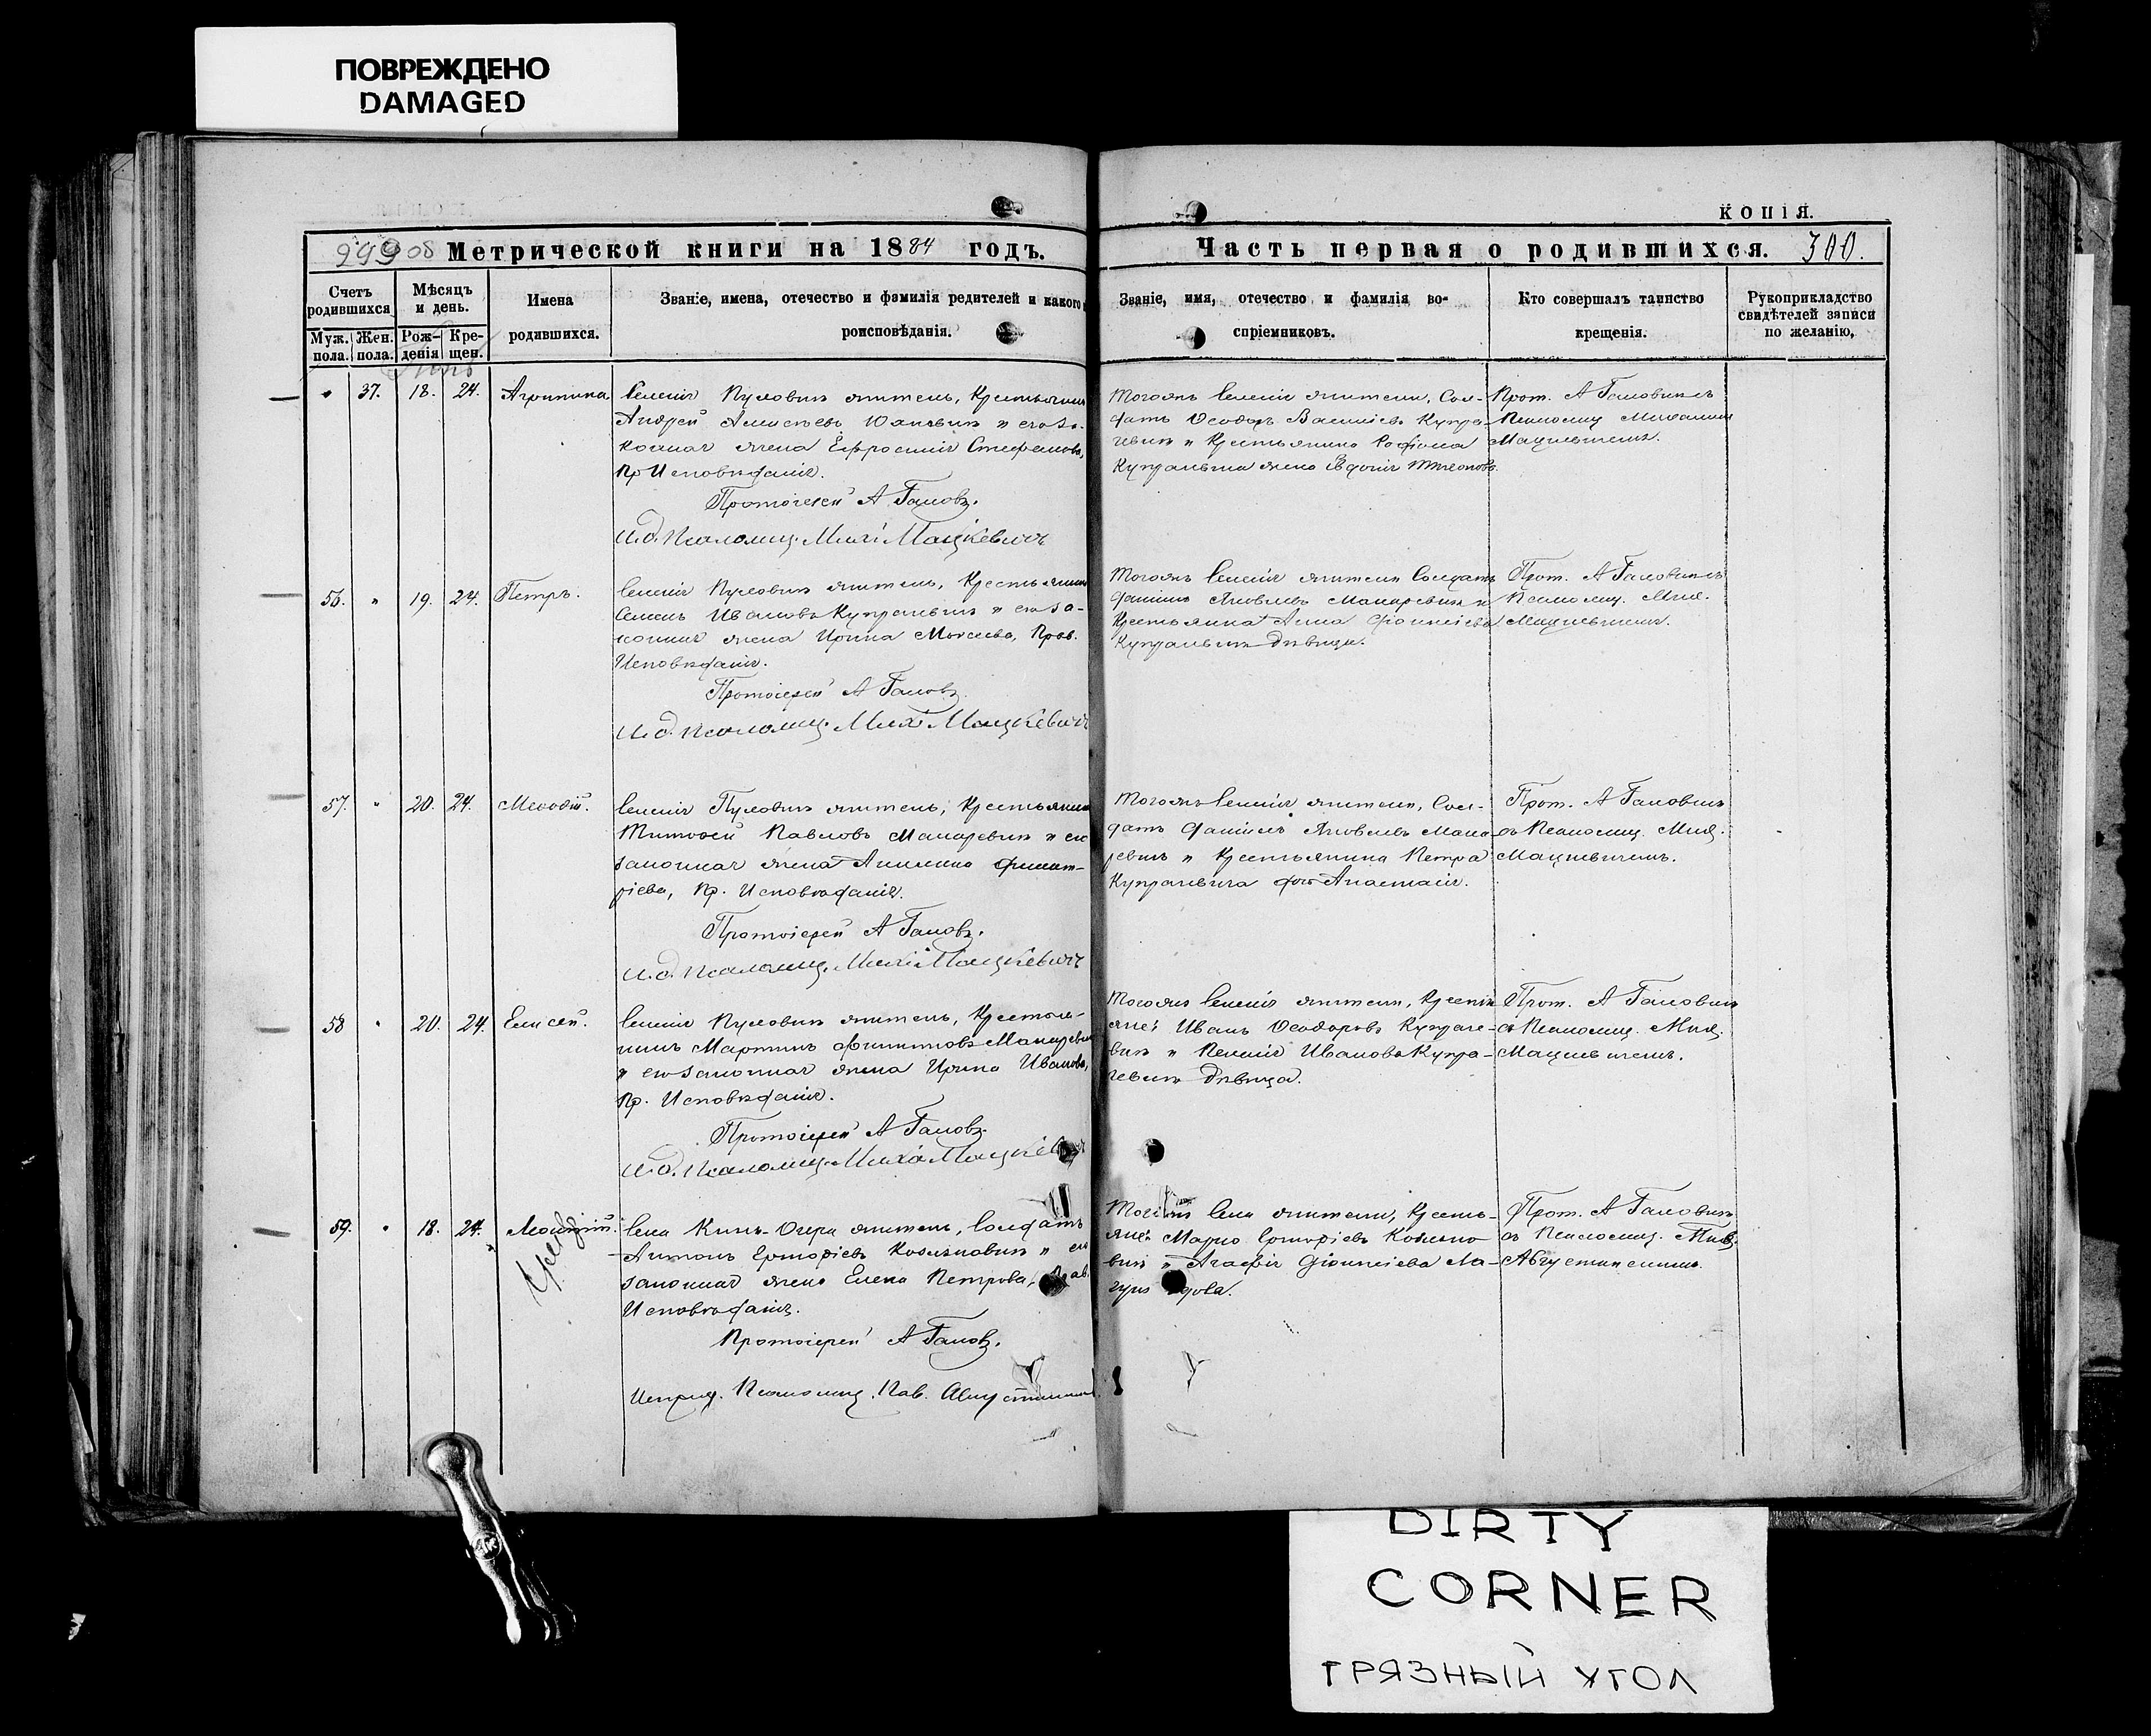 ПОВРЕЖДЕНО
DAMAGED
КОПІЯ.
299
Метрической книги на 1884 годъ.
Часть первая о родившихся. 300.
Счетъ родившихся
Муж. пола.
Жен. пола.
Мѣсяцъ и день.
Рож- денія
Кре- щен.
Имена родившихся.
Званіе, имена, отечество и фамилія родителей и какого
роисповѣданія.
Званіе, имя, отечество и фамилія во-
спріемниковъ.
Кто совершалъ таинство
крещенія.
Рукоприкладство
свидѣтелей записи
по желанію,
37. 18. 24. Агрипина
Селенія Пуховичи житель, Крестьянинъ
Андрей Алексѣевъ и его за-
конная жена Ефросинія Стефанова,
Пр Исповѣданія.
Протоіерей А Гановъ.
И.д. Псаломщ. Мих. Мацкевичъ
Тогожъ Селенія жители, Сол-
датъ Ѳеодоръ Васильевъ Купра-
чевичъ и Крестьянина Родіона
Купрачевича жена Евдокія
Прот. А Гановымъ
Псаломщ. Михаиломъ
Мацкевичемъ.
56. " 19. 24. Петръ.
Селенія Пуховичи житель, Крестьянинъ
Семенъ Ивановъ Купрачевичъ и его за-
конная жена Ирина Моисеева, Прав.
Исповѣданія.
Протоіерей А Гановъ.
И.д. Псаломщ. Мих Мацкевичъ
Тогожъ Селенія жители Солдатъ
Даніилъ Яковлевъ Макаревичъ и
Крестьянка Анна Діонисіева
Купрачевичъ дѣвица.
Прот. А Гановымъ
Псаломщ. Мих.
Мацкевичемъ.
57. " 20. 24. Меѳодій.
Селенія Пуховичи житель, Крестьянинъ
Тимоѳей Павловъ Макаревичъ и его
законная жена Акилина Димит-
ріева, Пр. Исповѣданія.
Протоіерей А Гановъ.
И.д. Псаломщ. Мих. Мацкевичъ
Тогожъ Селенія жители, Сол-
датъ Даніилъ Яковлевъ Мака-
ревичъ и Крестьянина Петра
Купрачевича дочь Анастасія.
Прот. А Гановымъ
съ Псаломщ. Мих.
Мацкевичемъ.
58 " 20. 24. Елисей.
Селенія Пуховичи житель, Крестья-
нинъ Мартинъ Филипповъ Макаревичъ
и его законная жена Ирина Иванова,
Пр. Исповѣданія.
Протоіерей А Гановъ.
И.д. Псаломщ. Миха Мацкевичъ
Тогожъ Селенія жители, Кресть
яне: Иванъ Ѳеодоровъ Купраче-
вичъ и Пелагія Иванова Купра-
чевичъ дѣвица.
Прот. А Гановымъ
съ Псаломщ. Мих.
Мацкевичемъ.
59. " 18. 24.
Села Князь-Озера житель, Солдатъ
Антонъ и его
законная жена Елена Петрова, Прав
Исповѣданія.
Протоіерей А Гановъ.
Псаломщ. Пав. Августинович
Села жители, Кресть-
яне: Марко
вичъ и Агафія Діонисіева Ла-
Прот. А Гановымъ
съ Псаломщ. Пав.
DIRTY
CORNER
ГРЯЗНЫЙ УГОЛ